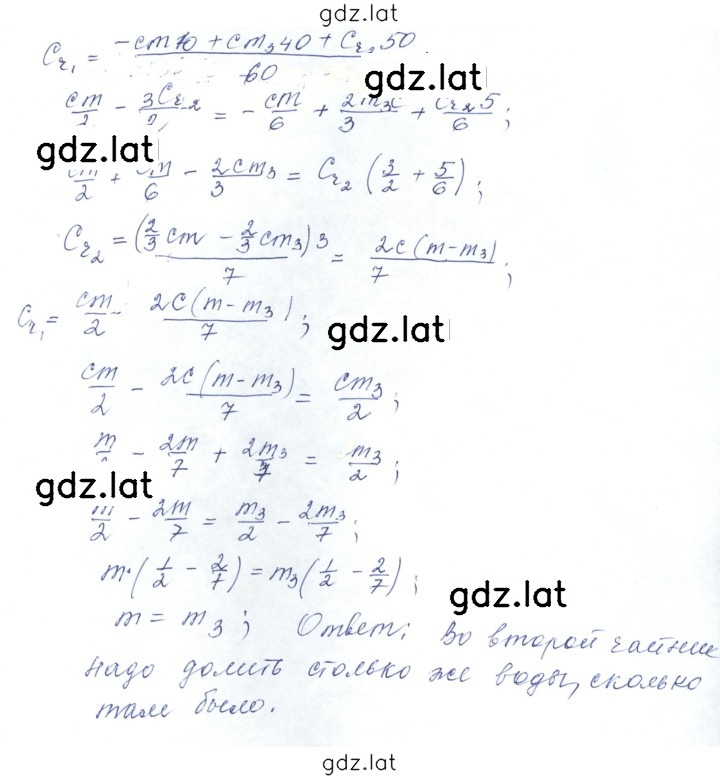 gdz.lat
C₂₁ = (-cm10 + cm₃40 + C₂₂50) / 60
gdz.lat
cm/2 - 3C₂₂/2 = - cm/6 + 2m₃c/3 + C₂₂5/6 ;
gdz.lat
cm/2 + cm/6 - 2cm₃/3 = C₂₂ (3/2 + 5/6) ;
C₂₂ = (2/3 cm - 2/3 cm₃)3 / 7 = 2c(m-m₃) / 7 ;
C₂₁ = cm/2 - 2c(m-m₃) / 7 ;
gdz.lat
cm/2 - 2c(m-m₃) / 7 = cm₃/2 ;
m/2 - 2m/7 + 2m₃/7 = m₃/2 ;
gdz.lat
m/2 - 2m/7 = m₃/2 - 2m₃/7 ;
m·(1/2 - 2/7) = m₃(1/2 - 2/7) ;
gdz.lat
m = m₃ ; Ответ: Во второй чайник
надо долить столько же воды, сколько
там было.
gdz.lat